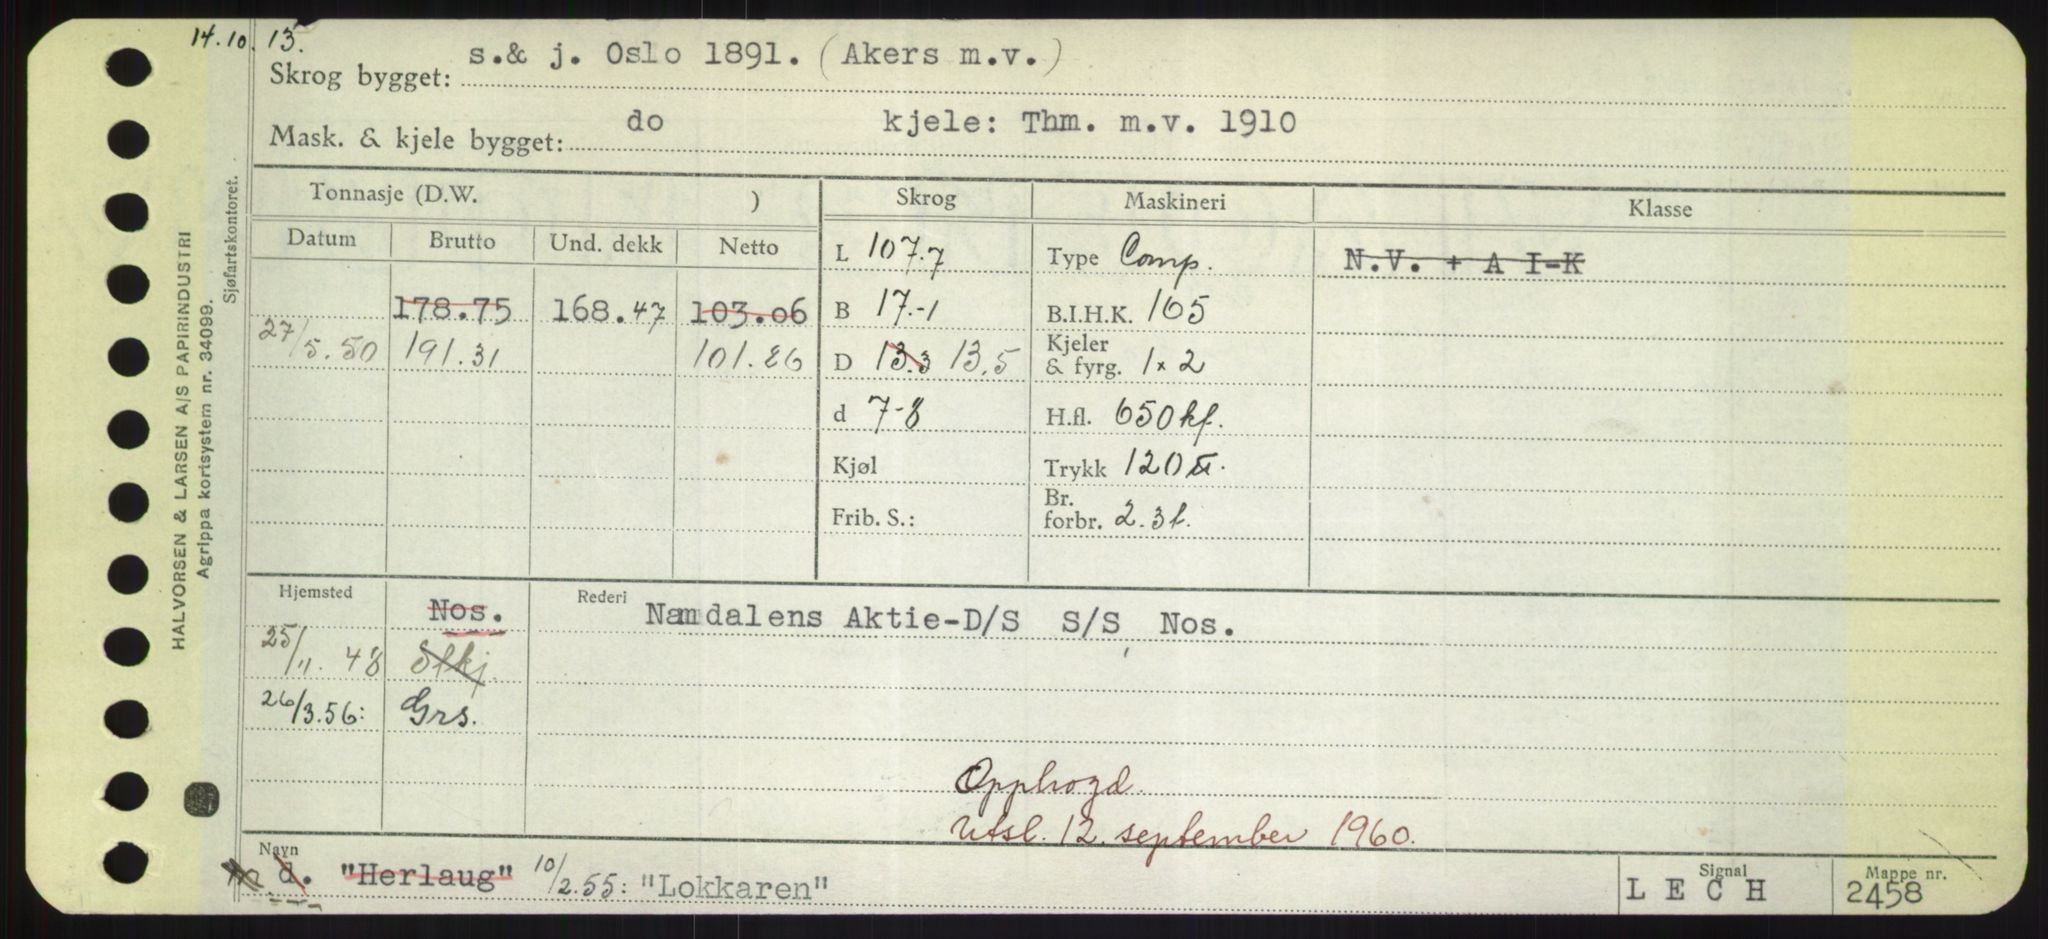 14.10.13.
Skrog bygget: s.& j. Oslo 1891. (Akers m.v.)
Mask. & kjele bygget: do kjele: Thm. m.v. 1910
Tonnasje (D.W. ) Skrog Maskineri Klasse
Datum Brutto Und. dekk Netto
L 107.7 Type Comp. N.V. + A I-K
178.75 168.47 103.06 B 17.-1 B.I.H.K. 165
27/5.50 191.31 101.86 D 13.3 13.5 Kjeler & fyrg. 1x2
d 7-8 H.fl. 650 kf.
Kjøl Trykk 120
Frib. S.: Br. forbr. 2.3 t.
Hjemsted Nos. Rederi Namdalens Aktie-D/S S/S Nos.
25/11.48 Stkj
26/3.56: Grs.
Opphogd
utsl. 12. september 1960.
Navn Signal Mappe nr.
d. "Herlaug" 10/2.55: "Lokkaren" LECH 2458
HALVORSEN & LARSEN A/S PAPIRINDUSTRI
Agrippa kortsystem nr. 34099.
Sjøfartskontoret.